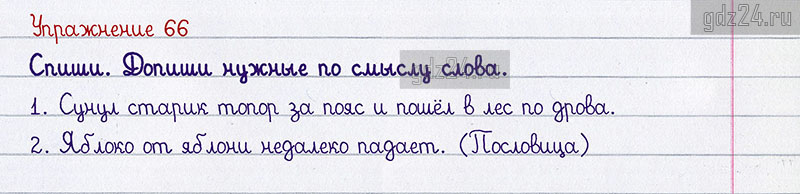 Упражнение 66
gdz24.ru
Спиши. Допиши нужные по смыслу слова.
gdz24.ru
1. Сунул старик топор за пояс и пошёл в лес по дрова.
2. Яблоко от яблони недалеко падает. (Пословица)